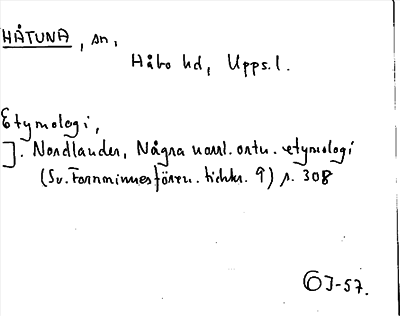 HÅTUNA, sn,
Håbo hd, Upps.l.
Etymologi,
J. Nordlander, Några norrl. ortn. etymologi
(Sv. Fornminnesfören. tidskr. 9) s. 308
OJ-57.